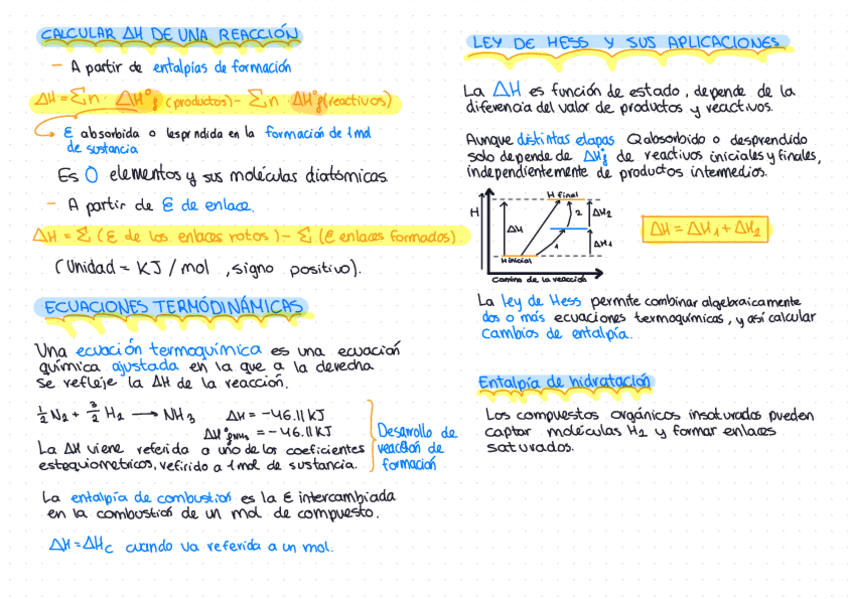 CALCULAR ΔH DE UNA REACCIÓN
- A partir de entalpías de formación
ΔH = Σn · ΔHºf (productos) - Σn · ΔHºf (reactivos)
E absorbida o desprendida en la formación de 1 mol
de sustancia
Es 0 elementos y sus moléculas diatómicas.
- A partir de E de enlace.
ΔH = Σ (E de los enlaces rotos) - Σ (E enlaces formados)
(Unidad = KJ / mol , signo positivo).
ECUACIONES TERMÓDINÁMICAS
Una ecuación termoquímica es una ecuación
química ajustada en la que a la derecha
se refleje la ΔH de la reacción.
1/2 N2 + 3/2 H2 → NH3 ΔH = -46.11 KJ
= -46.11 KJ
La ΔH viene referida a uno de los coeficientes
estequiometricos, referido a 1 mol de sustancia.
Desarrollo de
reacción de
formación
La entalpía de combustión es la E intercambiada
en la combustión de un mol de compuesto.
ΔH = ΔHc cuando va referida a un mol.
LEY DE HESS Y SUS APLICACIONES
La ΔH es función de estado, depende de la
diferencia del valor de productos y reactivos.
Aunque distintas etapas Q absorbido o desprendido
solo depende de ΔHºf de reactivos iniciales y finales,
independientemente de productos intermedios.
H
H final
ΔH
2
ΔH2
1
ΔH1
H inicial
Camino de la reacción
ΔH = ΔH1 + ΔH2
La ley de Hess permite combinar algebraicamente
dos o más ecuaciones termoquímicas, y así calcular
cambios de entalpía.
Entalpía de hidratación
Los compuestos orgánicos insaturados pueden
captar moléculas H2 y formar enlaces
saturados.